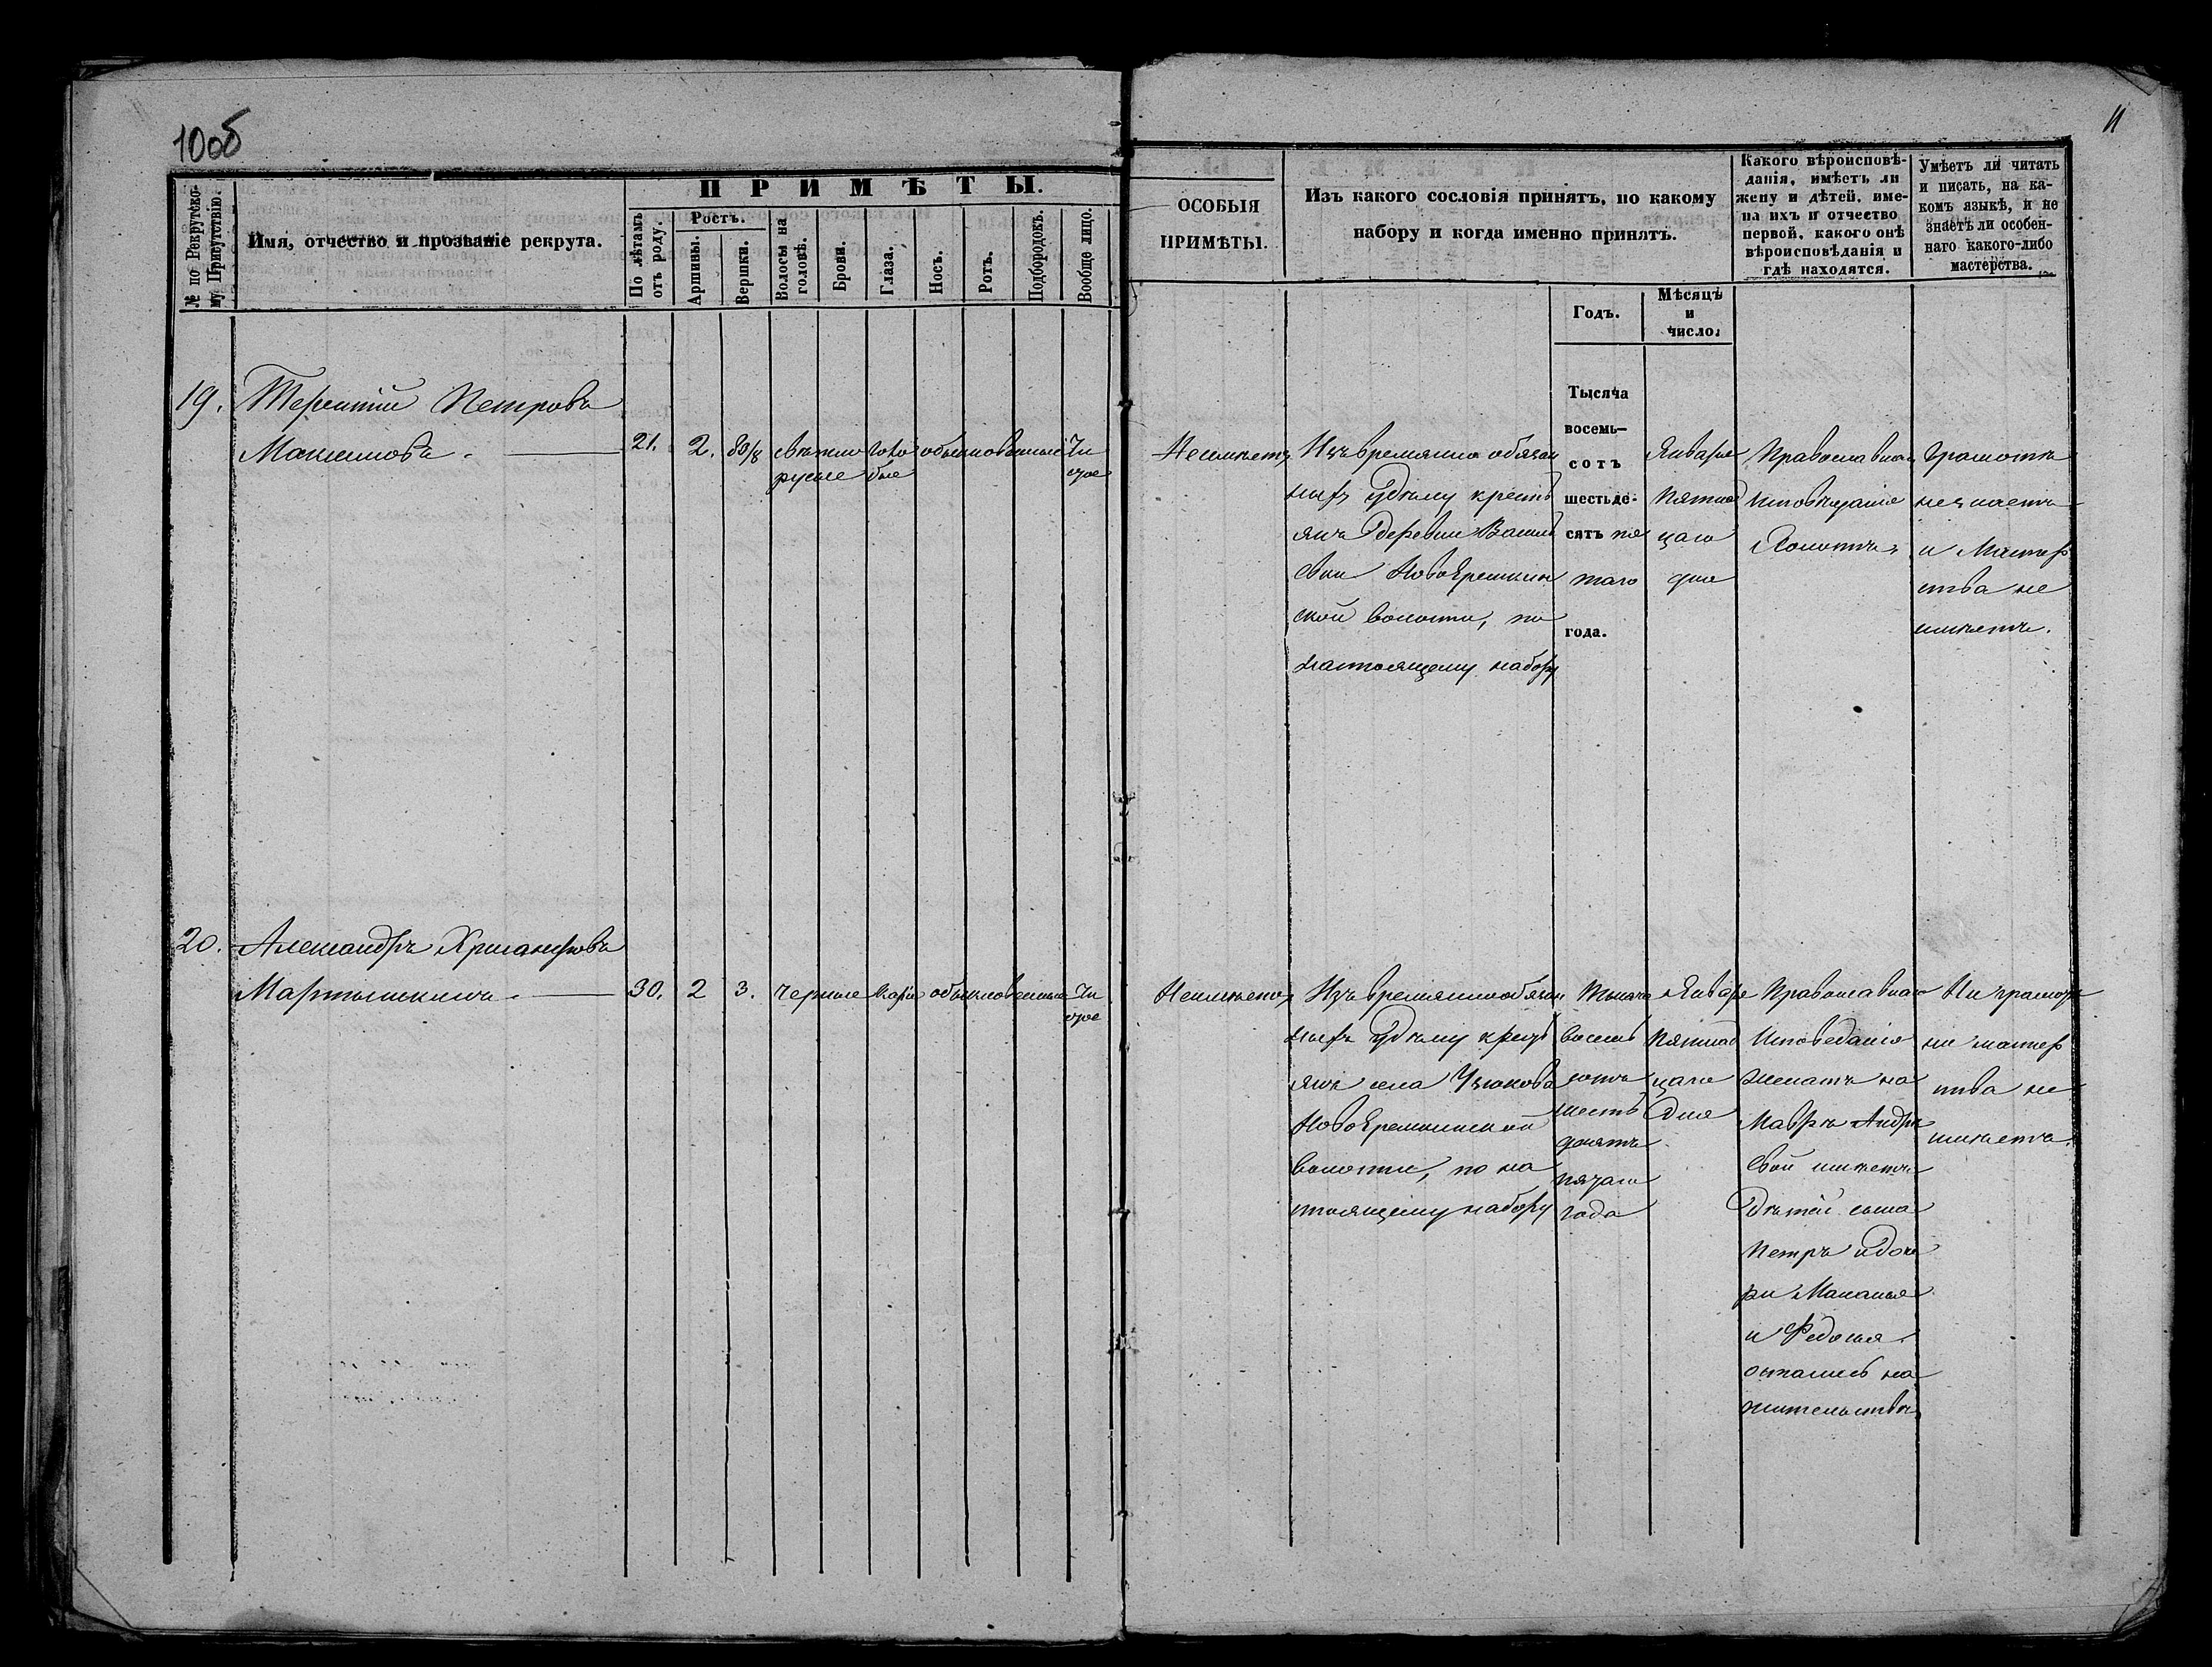 10об
11
№ по Рекрутско-
му Присутствію.
Имя, отчество и прозваніе рекрута.
ПРИМѢТЫ.
По лѣтамъ
отъ роду.
Ростъ.
Аршины.
Вершки.
Волосы на
головѣ.
Брови.
Глаза.
Носъ.
Ротъ.
Подбородокъ.
Вообще лицо.
ОСОБЫЯ
ПРИМѢТЫ.
Изъ какого сословія принятъ, по какому
набору и когда именно принятъ.
Годъ.
Мѣсяцъ
и
число.
Какого вѣроисповѣ-
данія, имѣетъ ли
жену и дѣтей, име-
на ихъ и отчество
первой, какого онѣ
вѣроисповѣданія и
гдѣ находятся.
Умѣетъ ли читать
и писать, на ка-
комъ языкѣ, и не
знаетъ ли особен-
наго какого-либо
мастерства.
19.
Терентій Петровъ
Максимовъ.
21.
2.
свѣтло
русые
голу
бые
обыкновенные
Чи
стое
Неимѣетъ
Изъ временно обязан
ныхъ Удѣлу кресть
янъ деревни Василь
евки НовоЕремкин
ской волости, по
настоящему набору
Тысяча
восемь-
сотъ
шестьде-
сятъ пя
таго
года.
Января
пятнад
цаго
дня
Православнаго
исповѣданія
Холостъ
Грамотѣ
незнаетъ
и Мастер
ства не
имѣетъ.
20.
Александръ Хрисанфовъ
Мартышкинъ.
30.
2
3.
черные
Каріе
обыкновенные
Чи
стое
Неимѣетъ
Изъ временнообязан
ныхъ Удѣлу кресть
янъ села Узюкова
НовоЕремкинской
волости, по на
стоящему набору
Тысяча
восемь
сотъ
шесть
десятъ
пятаго
года
Января
Пятнад
цаго
Дня
Православнаго
Исповеданія
женатъ на
Маврѣ Андре
евой имѣетъ
Дѣтей сына
Петръ и доче
ри Маланья
и Федосья
остались на
жительствѣ
Ни грамоты
ни мастер
ства не
имѣетъ.